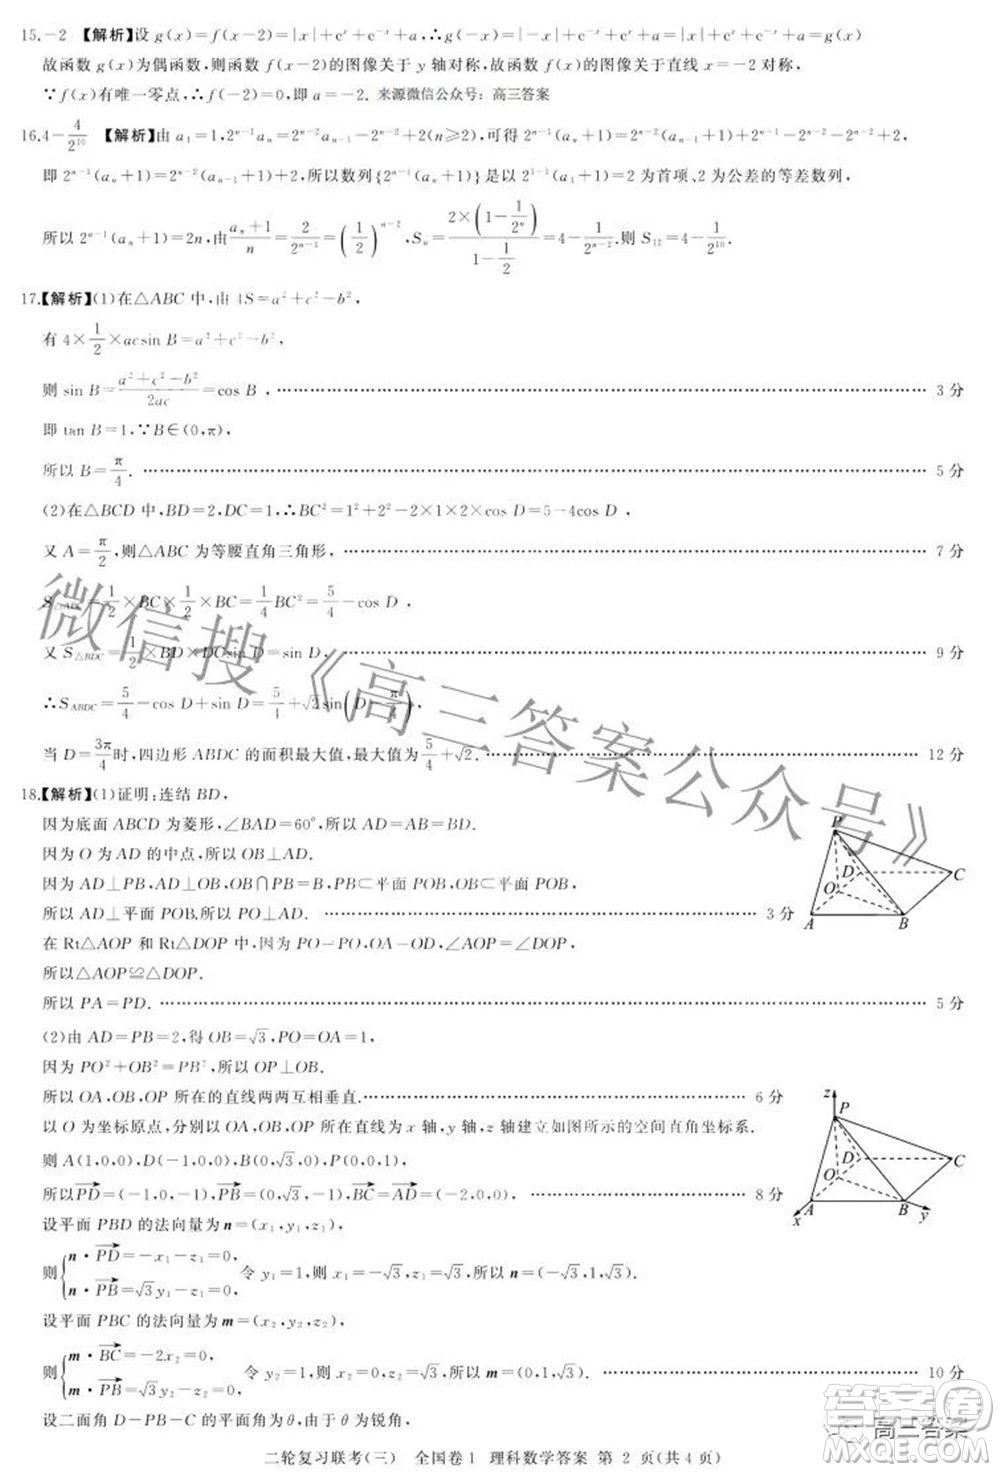 15.-2 【解析】设 g(x)=f(x-2)=|x|+eˣ+e⁻ˣ+a,∴g(-x)=|-x|+e⁻ˣ+eˣ+a=g(x)
故函数 g(x)为偶函数,则函数 f(x-2)的图像关于 y 轴对称,所以函数 f(x)的图像关于直线 x=-2 对称,
∵f(x)有唯一零点,∴f(-2)=0,即 a=-2. 来源微信公众号:高三答案
16.4-4/2¹⁰ 【解析】由 a₁=1,2ⁿ⁻¹aₙ=2ⁿ⁻¹aₙ₋₁-2ⁿ⁻²+2(n≥2),可得
即 2ⁿ⁻¹(aₙ+1)=2ⁿ⁻²(aₙ₋₁+1)+2,所以数列{2ⁿ⁻¹(aₙ+1)}是以 2¹⁻¹(a₁+1)=2 为首项、2 为公差的等差数列,
所以 2ⁿ⁻¹(aₙ+1)=2n,由(aₙ+1)/n=2/2ⁿ⁻¹=(1/2)ⁿ⁻²,Sₙ=2×(1-1/2ⁿ)/(1-1/2)=4-1/2ⁿ⁻²,则 S₁₂=4-1/2¹⁰.
17.【解析】(1)在△ABC 中,由 4S=a²+c²-b²,
有 4×1/2×acsin B=a²+c²-b²,
则 sin B=(a²+c²-b²)/2ac=cos B, 3 分
即 tan B=1,∵B∈(0,π),
所以 B=π/4. 5 分
(2)在△BCD 中,BD=2,DC=1,∴BC²=1²+2²-2×1×2×cos D=5-4cos D,
又 A=π/2,则△ABC 为等腰直角三角形, 7 分
S△ABC=1/2×BC×1/2×BC=1/4BC²=5/4-cos D,
又 S△BDC=1/2×BD×DCsin D=sin D, 9 分
∴S_ABDC=5/4-cos D+sin D=5/4+√2sin(D-π/4),
当 D=3π/4时,四边形 ABDC 的面积最大值,最大值为5/4+√2. 12 分
18.【解析】(1)证明:连结 BD,
因为底面 ABCD 为菱形,∠BAD=60°,所以 AD=AB=BD.
因为 O 为 AD 的中点,所以 OB⊥AD.
因为 AD⊥PB,AD⊥OB,OB∩PB=B,OB,PB⊂平面 POB,
所以 AD⊥平面 POB,所以 PO⊥AD. 3 分
在 Rt△AOP 和 Rt△DOP 中,因为 PO=PO,OA=OD,∠AOP=∠DOP,
所以△AOP≌△DOP.
所以 PA=PD. 5 分
P
D
C
O
A
B
(2)由 AD=PB=2,得 OB=√3,PO=OA=1,
因为 PO²+OB²=PB²,所以 PO⊥OB.
所以 OA,OB,OP 所在的直线两两互相垂直. 6 分
以 O 为坐标原点,分别以 OA,OB,OP 所在直线为 x 轴,y 轴,z 轴建立如图所示的空间直角坐标系.
则 A(1,0,0),D(-1,0,0),B(0,√3,0),P(0,0,1)
所以PD=(-1,0,-1),PB=(0,√3,-1),BC=AD=(-2,0,0), 8 分
z
P
D
C
O
A
B
x
y
设平面 PBD 的法向量为 n=(x₁,y₁,z₁),
则{n·PD=-x₁-z₁=0, n·PB=√3y₁-z₁=0, 令 y₁=1,则 x₁=-√3,z₁=√3,所以 n=(-√3,1,√3).
设平面 PBC 的法向量为 m=(x₂,y₂,z₂),
则{m·BC=-2x₂=0, m·PB=√3y₂-z₂=0, 令 y₂=1,则 x₂=0,z₂=√3,所以 m=(0,1,√3). 10 分
设二面角 D-PB-C 的平面角为 θ,由于 θ 为锐角,
二轮复习联考(三) 全国卷1 理科数学答案 第 2 页(共 4 页)
微信搜《高三答案公众号》
答案圈
高三答案